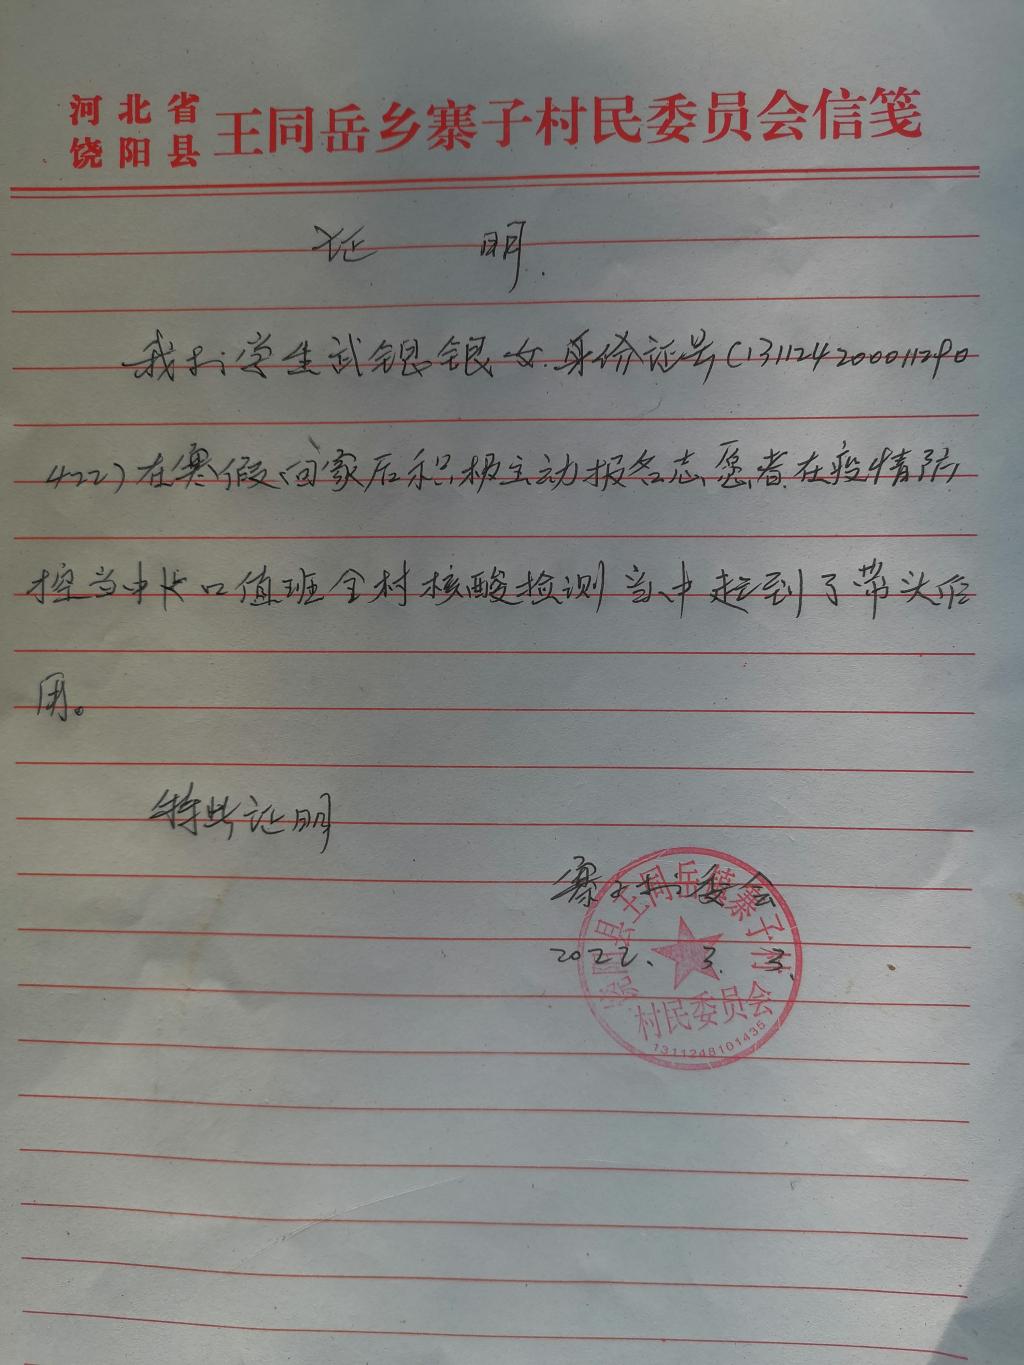 河北省
饶阳县
王同岳乡寨子村民委员会信笺
证 明
我村学生武银银 女 身份证号(13112420001129 0
422)在寒假回家后积极主动报名志愿者在疫情防
控当中卡口值班全村核酸检测当中起到了带头作
用。
特此证明
寨子村委会
2022. 3. 3.
饶阳县王同岳镇寨子村
村民委员会
1311248101435